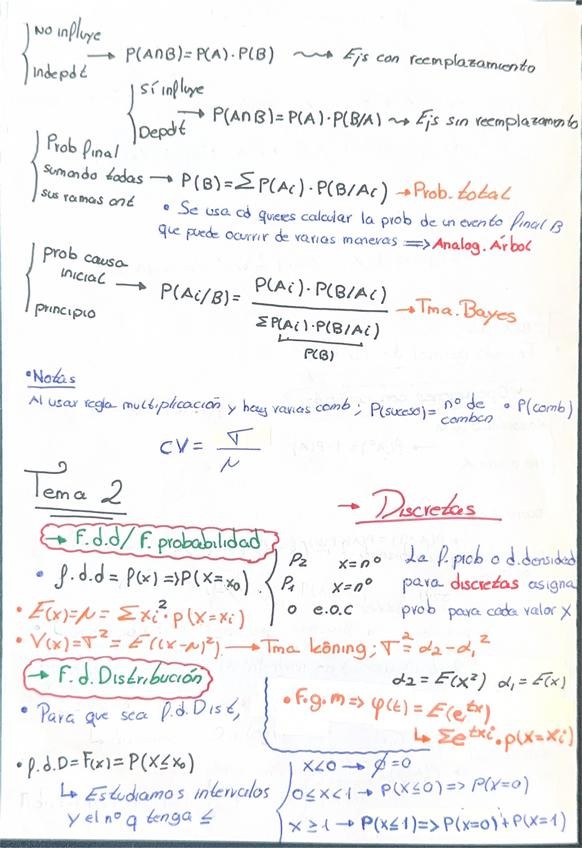 No influye
Indepdt → P(A∩B)=P(A)·P(B) ⇝ Ejs con reemplazamiento
Sí influye
Depdt → P(A∩B)=P(A)·P(B/A) ⇝ Ejs sin reemplazamiento
Prob final
sumando todas → P(B)=∑P(Ai)·P(B/Ai) → Prob. total
sus ramas ant
• Se usa cd quieres calcular la prob de un evento final B
que puede ocurrir de varias maneras ⇒ Analog. Árbol
prob causa
inicial → P(Ai/B)= P(Ai)·P(B/Ai) / ∑P(Ai)·P(B/Ai) → Tma. Bayes
principio
P(B)
• Notas
Al usar regla multiplicación y hay varias comb; P(suceso)= nº de combcn • P(comb)
CV = σ / μ
Tema 2
→ Discretas
→ F.d.d/ F. probabilidad
• f.d.d = f(x) => P(X=x₀)
P₂ x=nº
P₁ x=nº
0 e.o.c
La f.prob o d.densidad
para discretas asigna
prob para cada valor X
• E(x)=μ= ∑xi²·p(x=xi)
• V(x)=σ²= E((x-μ)²) → Tma köning; σ²=α₂-α₁²
α₂=E(x²) α₁=E(x)
→ F.d.Distribución
• Para que sea f.d.Dist,
• F.g.m => φ(t)=E(eᵗˣ)
↳ ∑eᵗˣⁱ·p(x=xi)
• f.d.D=F(x)=P(X≤x₀)
↳ Estudiamos intervalos
y el nº q tenga ≤
x<0 → ∅=0
0≤x<1 → P(x≤0) => P(x=0)
x≥1 → P(x≤1) => P(x=0)+P(x=1)